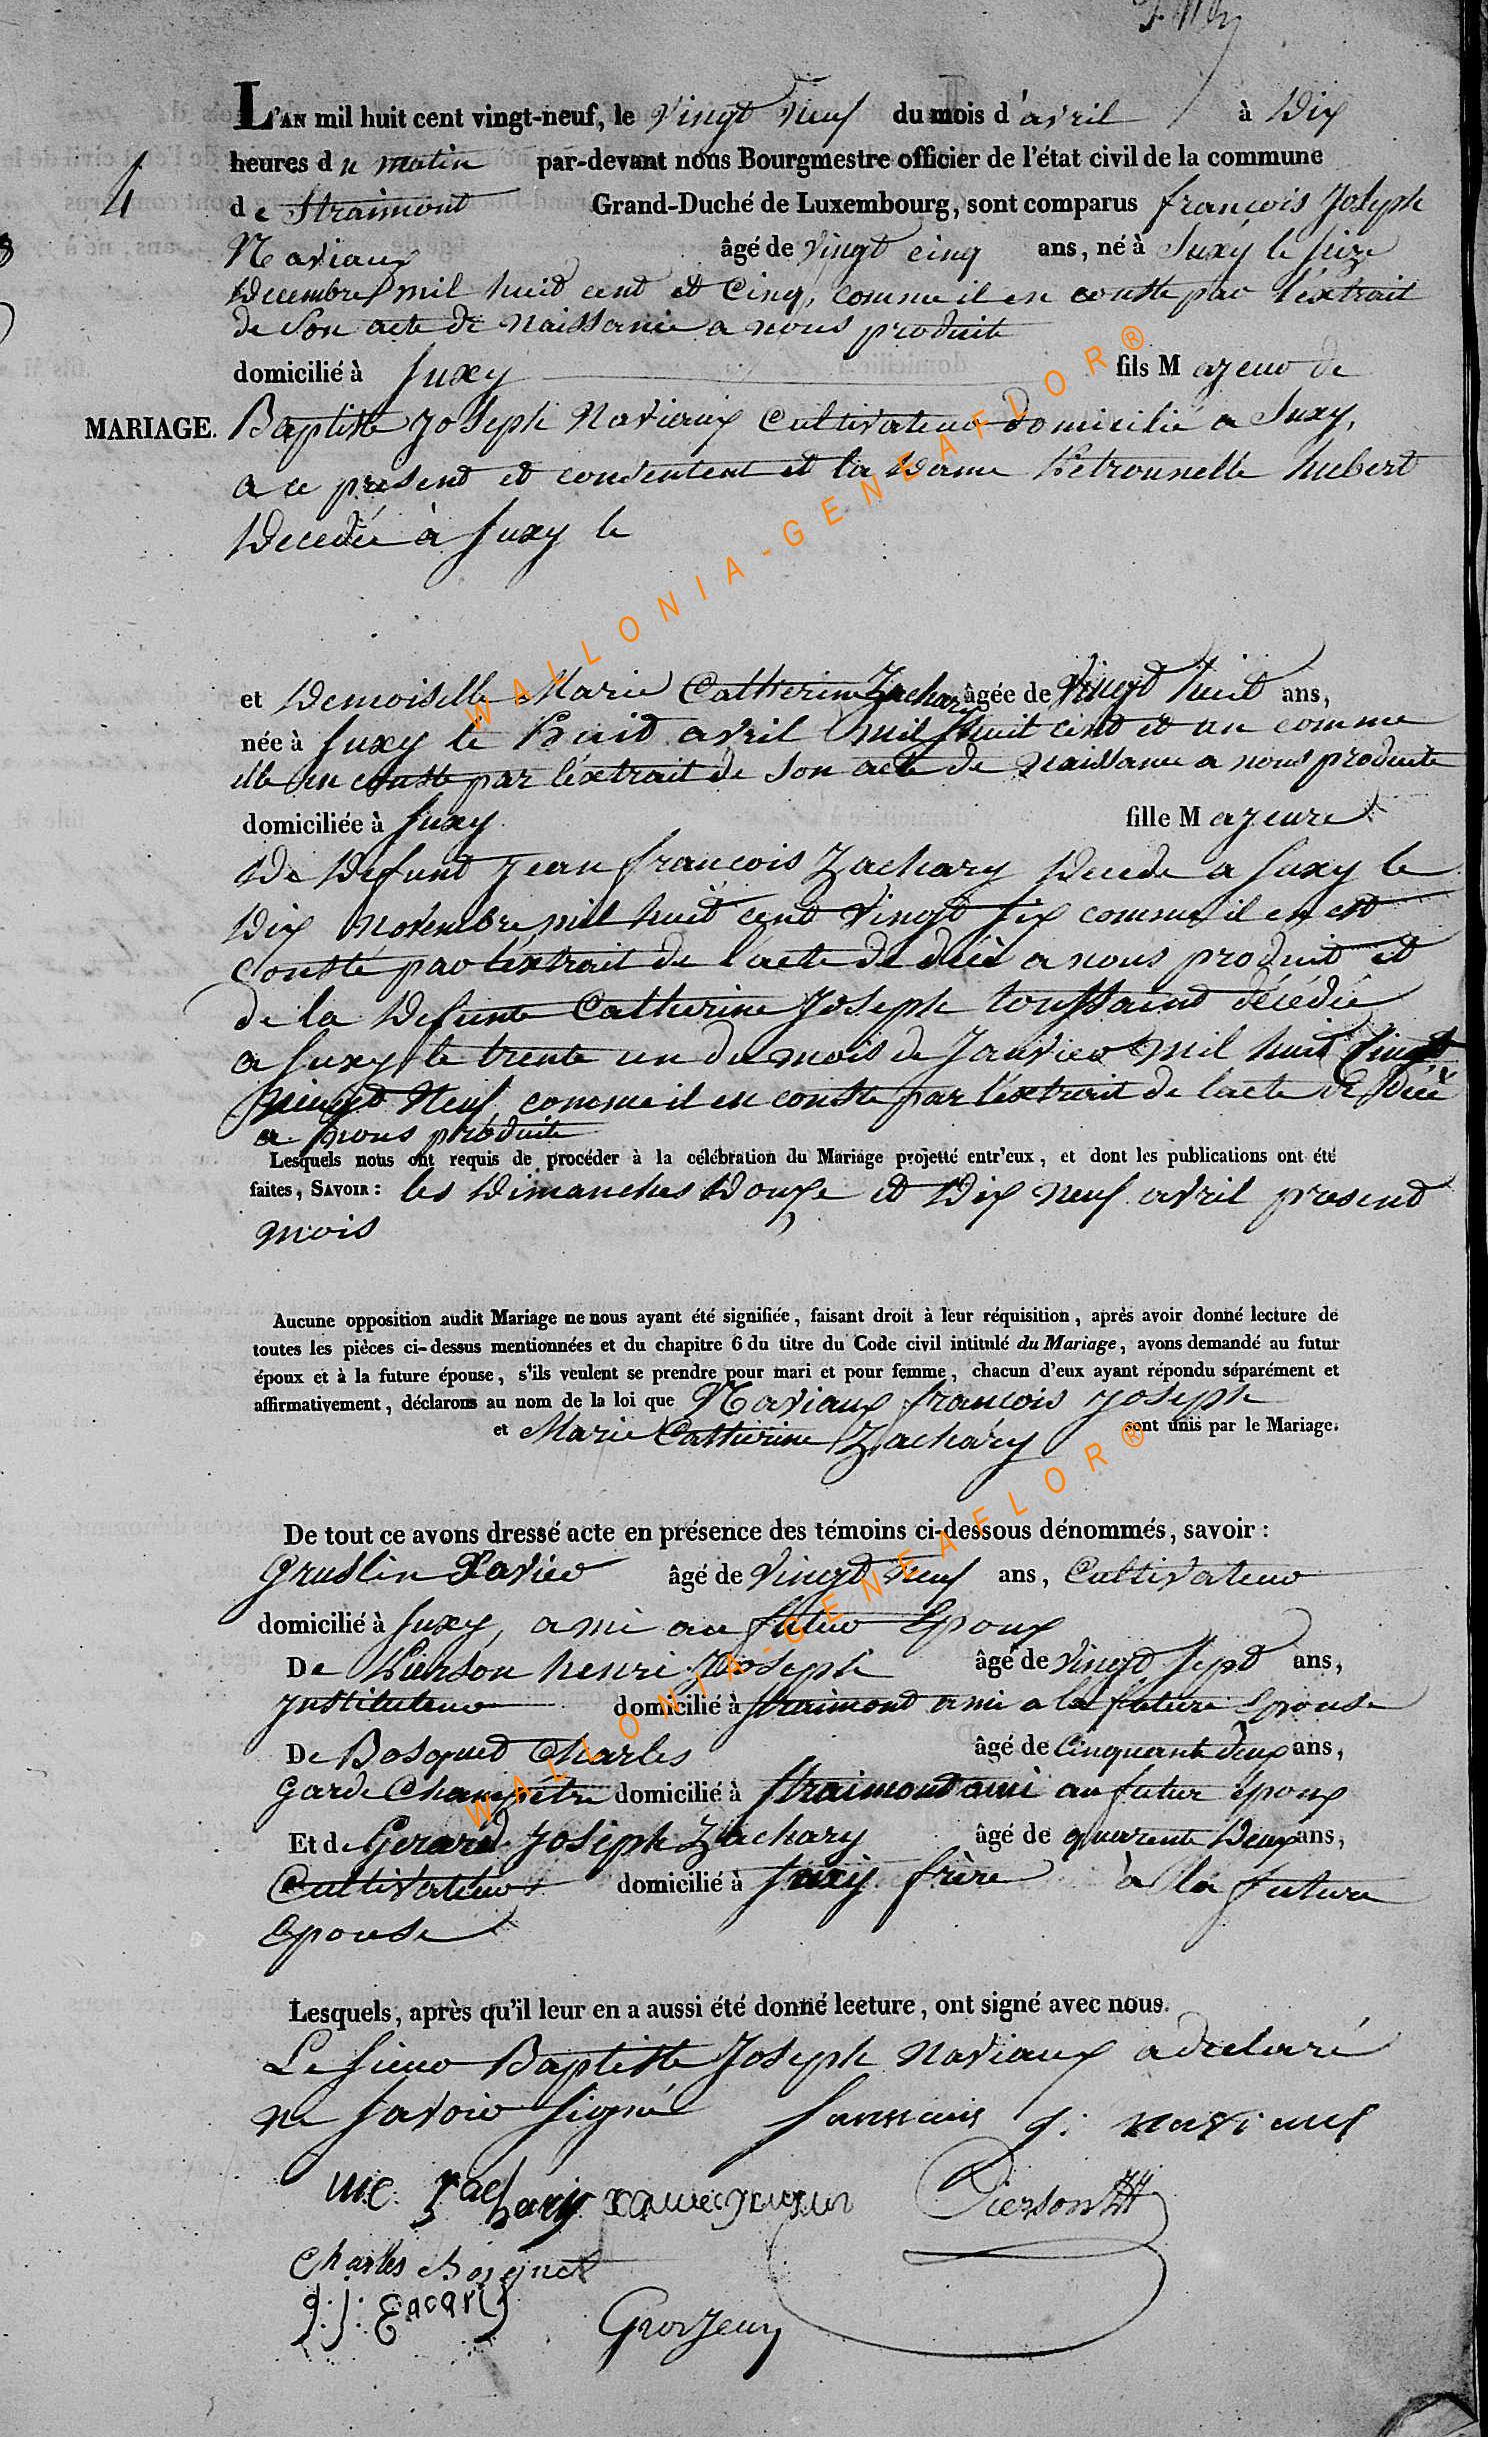 L'AN mil huit cent vingt-neuf, le vingt neuf du mois d'avril à Dix
heures du matin par-devant nous Bourgmestre officier de l'état civil de la commune
4
de Straimont Grand-Duché de Luxembourg, sont comparus françois Joseph
Naviaux âgé de vingt cinq ans, né à Suxy le seize
Decembre mil huit cent et Cinq, comme il en conste par l'extrait
de son acte de naissance a nous produite
domicilié à Suxy fils Majeur de
MARIAGE. Baptiste Joseph Naviaux Cultivateur domicilié a Suxy,
a ce present et consentent et la Dame Petronnelle hubert
Decedée à Suxy le
et Demoiselle Marie Catherine Zachary âgée de Vingt huit ans,
née à Suxy le huit avril mil huit cent et un comme
elle en conste par l'extrait de son acte de naissance a nous produite
domiciliée à Suxy fille Majeure
De Defunt Jean françois Zachary Decede a Suxy le
Dix Novembre mil huit cent vingt six comme il en est
Consté par l'extrait de l'acte de décè a nous produit et
de la Defunte Catherine Joseph toussaint décédée
a Suxy le trente un du mois de Janvier mil huit Vingt
Neuf, comme il en conste par l'extrait de l'acte de Décè
a nous produite
Lesquels nous ont requis de procéder à la célébration du Mariage projetté entr'eux, et dont les publications ont été
faites, SAVOIR : les Dimanches Douze et Dix neuf avril present
mois
Aucune opposition audit Mariage ne nous ayant été signifiée, faisant droit à leur réquisition, après avoir donné lecture de
toutes les pièces ci-dessus mentionnées et du chapitre 6 du titre du Code civil intitulé du Mariage, avons demandé au futur
époux et à la future épouse, s'ils veulent se prendre pour mari et pour femme, chacun d'eux ayant répondu séparément et
affirmativement, déclarons au nom de la loi que Naviaux françois Joseph
et Marie Catherine Zachary sont unis par le Mariage.
De tout ce avons dressé acte en présence des témoins ci-dessous dénommés, savoir :
Gruslin Xavier âgé de Vingt neuf ans, Cultivateur
domicilié à Suxy, ami au futur Epoux
De Pierson henri Joseph âgé de Vingt Sept ans,
Instituteur domicilié à Straimont ami a la future Epouse
De Bosquet Charles âgé de Cinquante Deux ans,
Garde Champêtre domicilié à Straimont ami au futur Epoux
Et de Gerard Joseph Zachary âgé de quarente Deux ans,
Cultivateur domicilié à Suxy frère à la future
Epouse
Lesquels, après qu'il leur en a aussi été donné lecture, ont signé avec nous.
Le Sieur Baptiste Joseph Naviaux a declaré
ne Savoir Signé
j: naviaux
MC. Zachary Pierson
Charles Bosquet
g: j: Zacary Grosjean
WALLONIA-GENEAFLOR®
WALLONIA-GENEAFLOR®